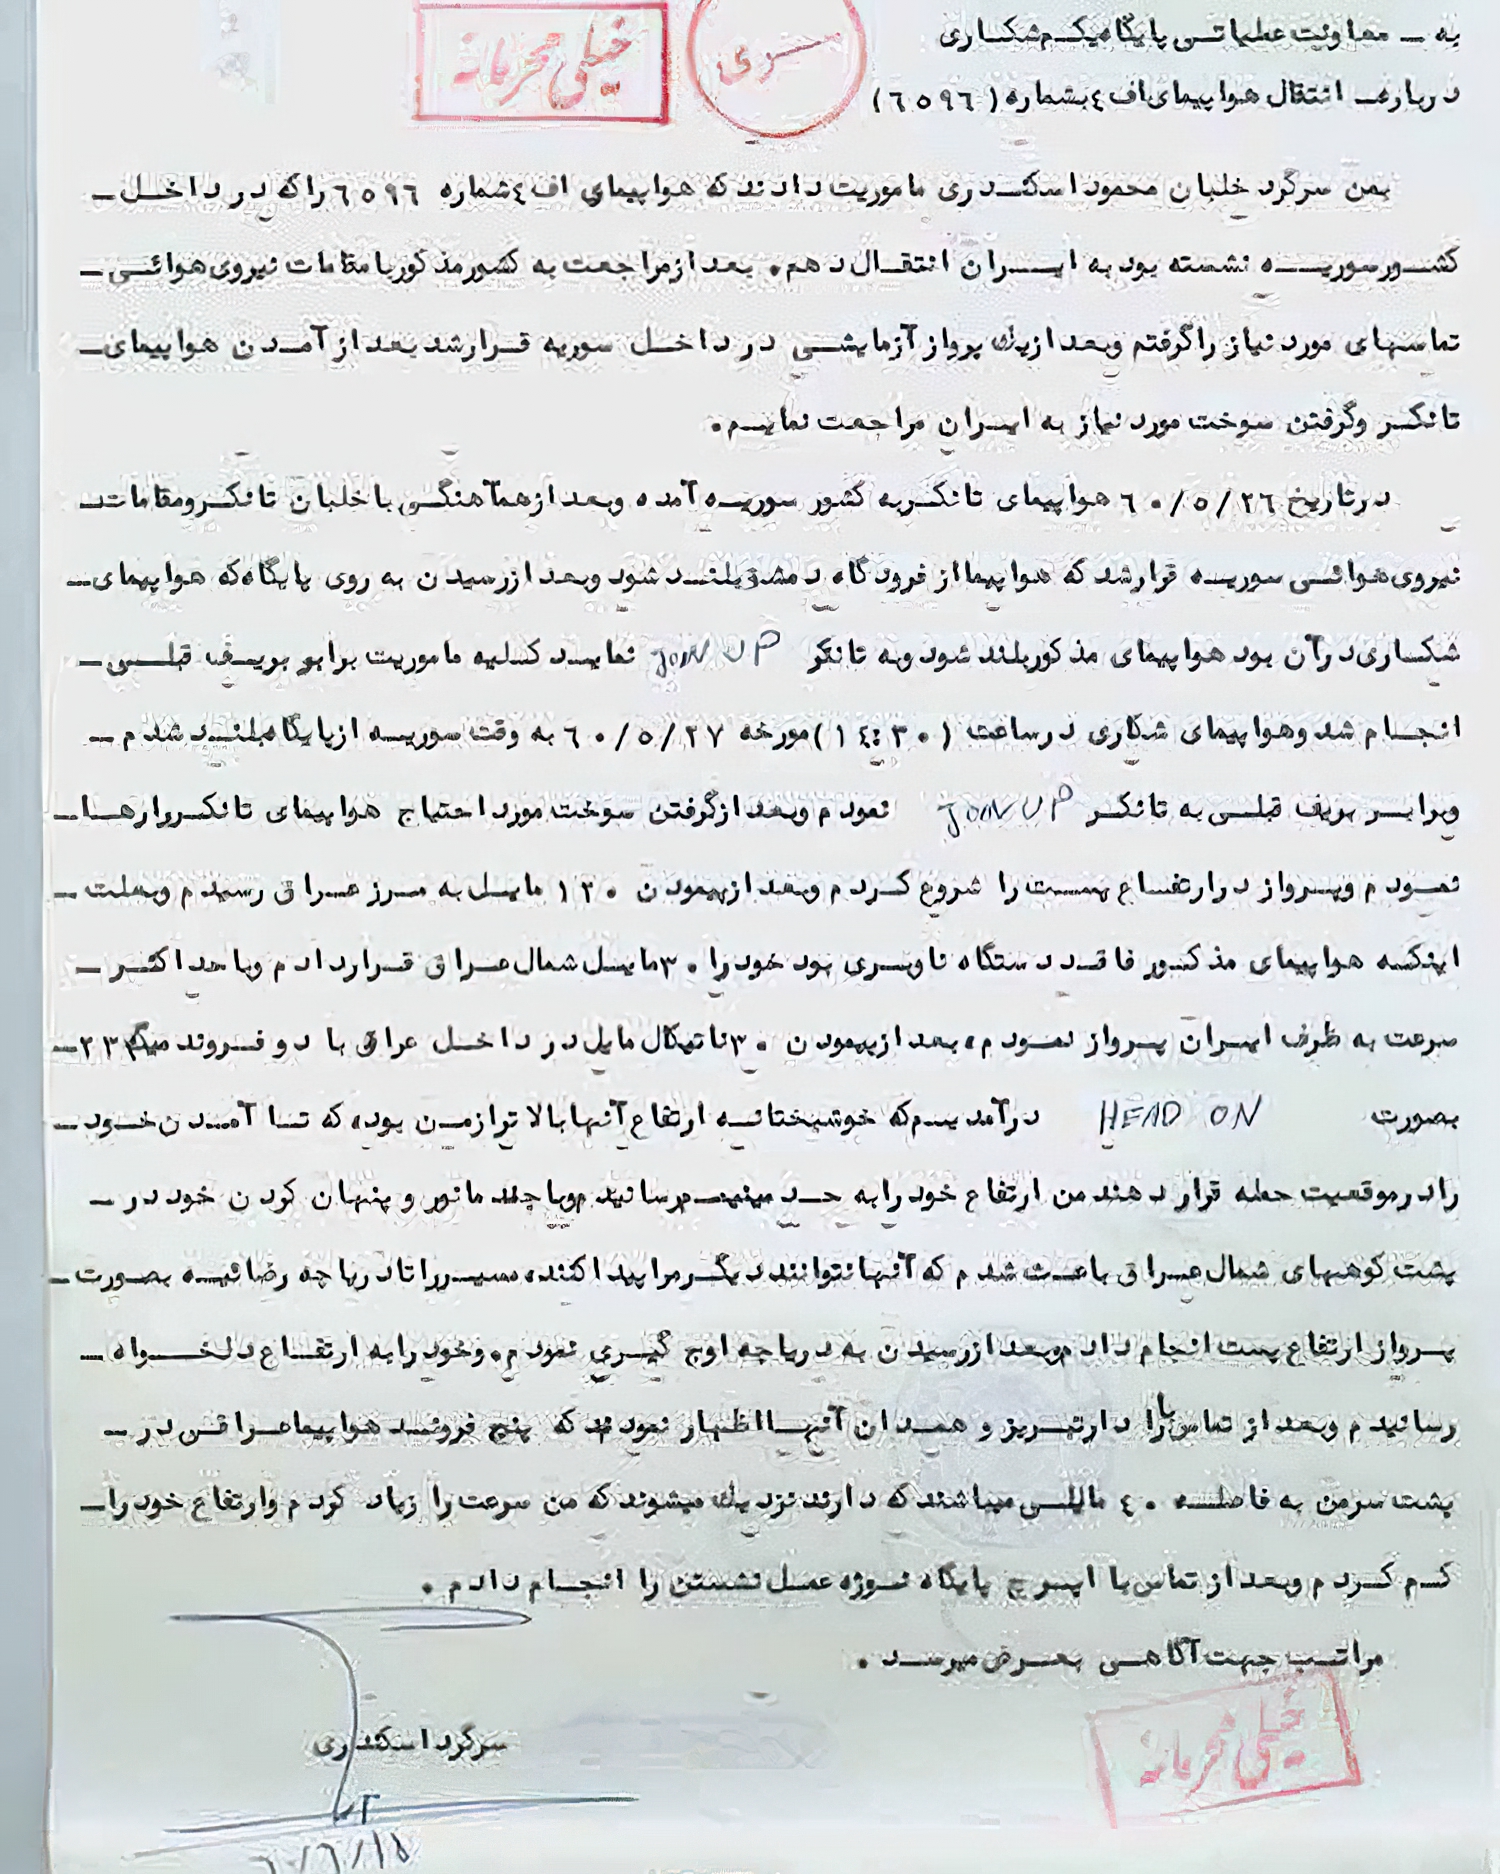 خیلی محرمانه
سری
به ـ معاونت عملیاتی پایگاه یکم شکاری
درباره ـ انتقال هواپیمای اف ٤ بشماره (٦٥٩٦)
بمن سرگرد خلبان محمود اسکندری ماموریت دادند که هواپیمای اف ٤ شماره ٦٥٩٦ را که در داخل ـ
کشور سوریه نشسته بود به ایران انتقال دهم. بعد از مراجعت به کشور مذکور با مقامات نیروی هوائی ـ
تماسهای مورد نیاز را گرفتم وبعد از یک پرواز آزمایشی در داخل سوریه قرار شد بعد از آمدن هواپیمای ـ
تانکر وگرفتن سوخت مورد نیاز به ایران مراجعت نمایم.
در تاریخ ٦٠/٥/٢٦ هواپیمای تانکر به کشور سوریه آمده وبعد از هم‌آهنگی با خلبان تانکر ومقامات ـ
نیروی هوائی سوریه قرار شد که هواپیما از فرودگاه دمشق بلند شود وبعد از رسیدن به روی پایگاه که هواپیمای ـ
شکاری در آن بود هواپیمای مذکور بلند شود وبه تانکر JOIN UP نماید کلیه ماموریت برابر بریف قبلی ـ
انجام شد وهواپیمای شکاری در ساعت (١٤:٣٠) مورخه ٦٠/٥/٢٧ به وقت سوریه از پایگاه بلند شدم ـ
وبرابر بریف قبلی به تانکر JOIN UP نمودم وبعد از گرفتن سوخت مورد احتیاج هواپیمای تانکر را رها ـ
نمودم وپرواز در ارتفاع پست را شروع کردم وبعد از پیمودن ١٢٠ مایل به مرز عراق رسیدم وبعلت ـ
اینکه هواپیمای مذکور فاقد دستگاه ناوبری بود خود را ٣٠ مایل شمال عراق قرار دادم وبا حداکثر ـ
سرعت به طرف ایران پرواز نمودم، بعد از پیمودن ٣٠ ناتیکال مایل در داخل عراق با دو فروند میگ ٢٣ ـ
بصورت HEAD ON درآمدیم که خوشبختانه ارتفاع آنها بالاتر از من بود، که تا آمدن خود ـ
را در موقعیت حمله قرار دهند من ارتفاع خود را به حد مینیمم رسانیدم وبا چند مانور و پنهان کردن خود در ـ
پشت کوههای شمال عراق باعث شدم که آنها نتوانند دیگر مرا پیدا کنند، مسیر را تا دریاچه رضائیه بصورت ـ
پرواز ارتفاع پست انجام دادم وبعد از رسیدن به دریاچه اوج گیری نمودم. وخود را به ارتفاع دلخواه ـ
رسانیدم وبعد از تماس با رادار تبریز و همدان آنها اظهار نمودند که پنج فروند هواپیما عراقی در ـ
پشت سر من به فاصله ٤٠ مایلی میباشند که دارند نزدیک میشوند که من سرعت را زیاد کردم وارتفاع خود را ـ
کم کردم وبعد از تماس با اپرچ پایگاه نوژه عمل نشستن را انجام دادم.
مراتب جهت آگاهی بعرض میرسد.
سرگرد اسکندری
خیلی محرمانه